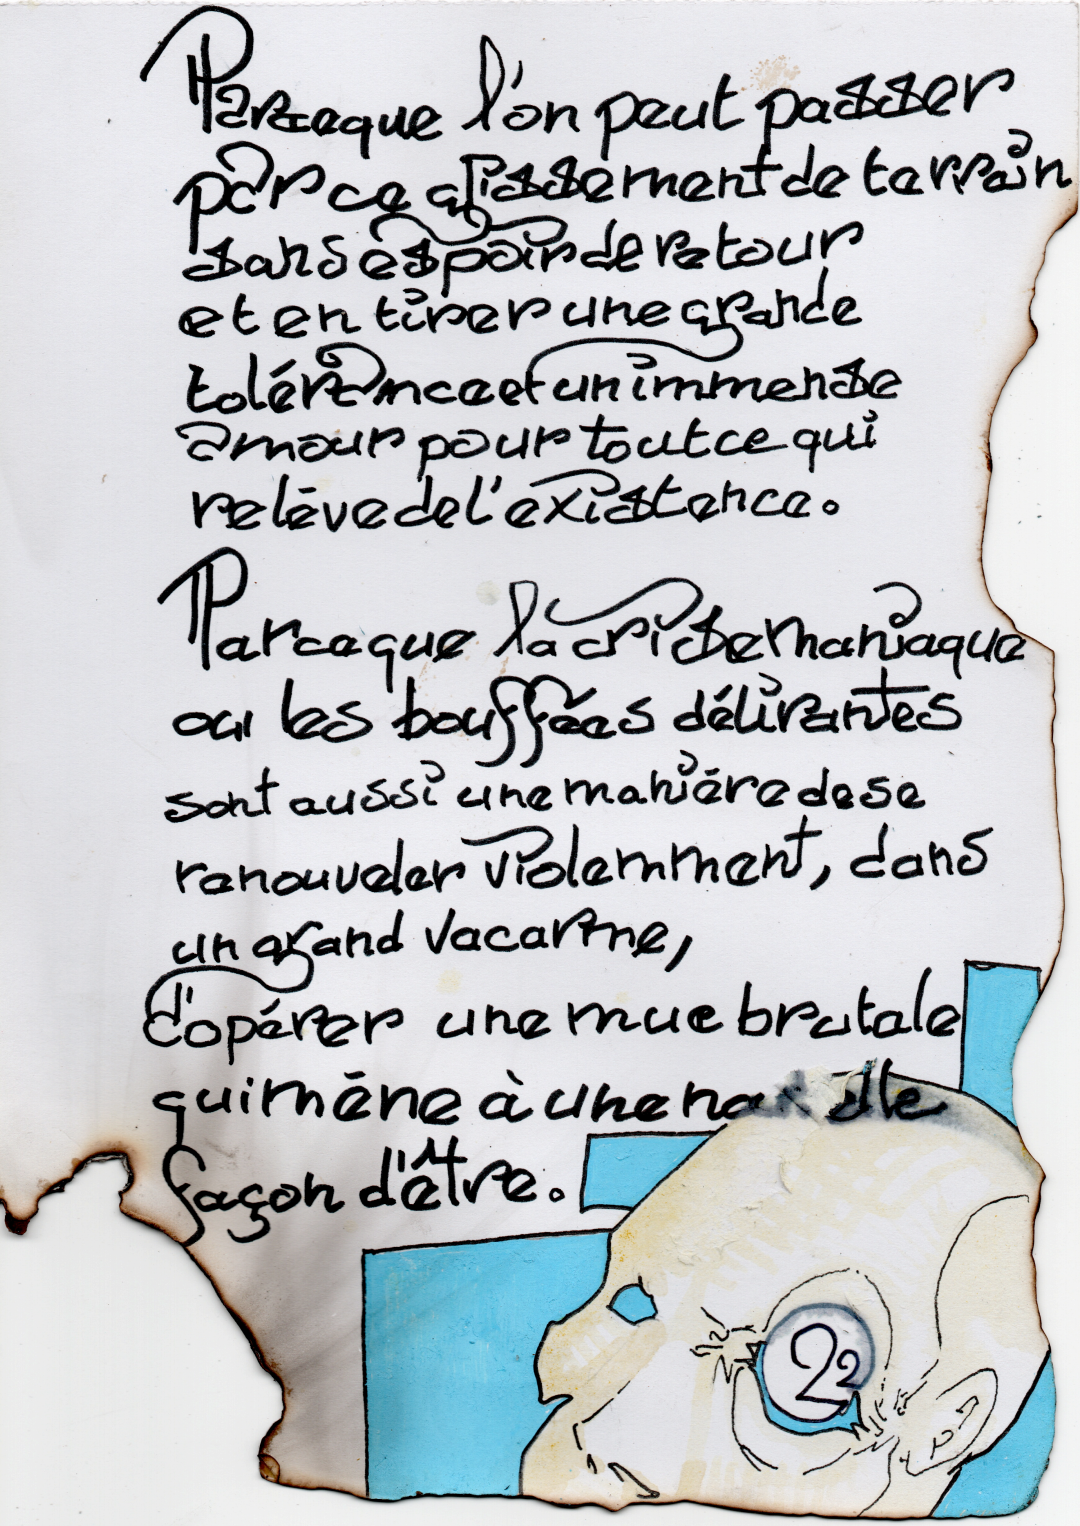 Parceque l'on peut passer
par ce glissement de terrain
sans espoir de retour
et en tirer une grande
tolérance et un immense
amour pour tout ce qui
relève de l'existence.
Parceque la crise maniaque
ou les bouffées délirantes
sont aussi une manière de se
renouveler violemment, dans
un grand vacarme,
d'opérer une mue brutale
qui mène à une
façon d'être.
22